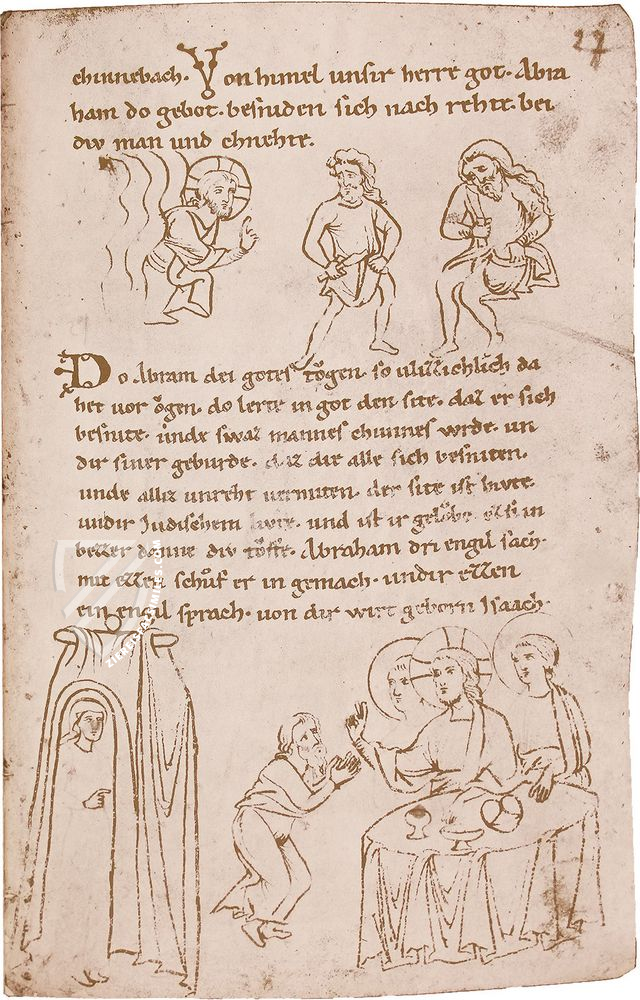 27
chinnebach. Von himel unsir herre got. Abra
ham do gebot. besniden sich nach rehte. bei
div man und chnehte.
Do Abram dei gotes tŏgen. so
da
het vor ŏgen. do lerte in got den site. daz er sich
besnite. unde swaz mannes chunnes wrde. un
dir siner geburde. daz die alle sich besniten.
unde alliz unreht vermiten. der site ist hivte
undir Judischem livte. und ist ir gelŏbe. ez si in
bezzer danne div tŏffe. Abraham dri engil sach.
mit ezzen schůf er in gemach. undir ezzen
ein engil sprach. von dir wirt geborn Isaach.